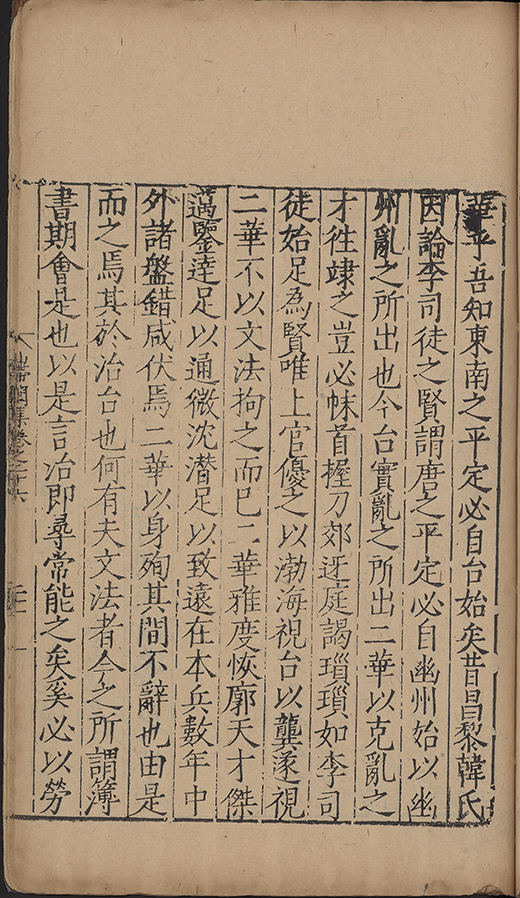 華乎吾知東南之平定必自台始矣昔昌黎韓氏
因論李司徒之賢謂唐之平定必自幽州始以幽
州亂之所出也今台實亂之所出二華以克亂之
才徃隷之豈必帓首握刀郊迓庭謁瑣瑣如李司
徒始足為賢唯上官優之以渤海視台以龔遂視
二華不以文法拘之而已二華雅度恢廓天才傑
邁鑒逹足以通微沈潜足以致遠在本兵數年中
外諸盤錯咸伏焉二華以身殉其間不辭也由是
而之焉其於治台也何有夫文法者今之所謂簿
書期會是也以是言治即尋常能之矣奚必以勞
洞集卷之十六